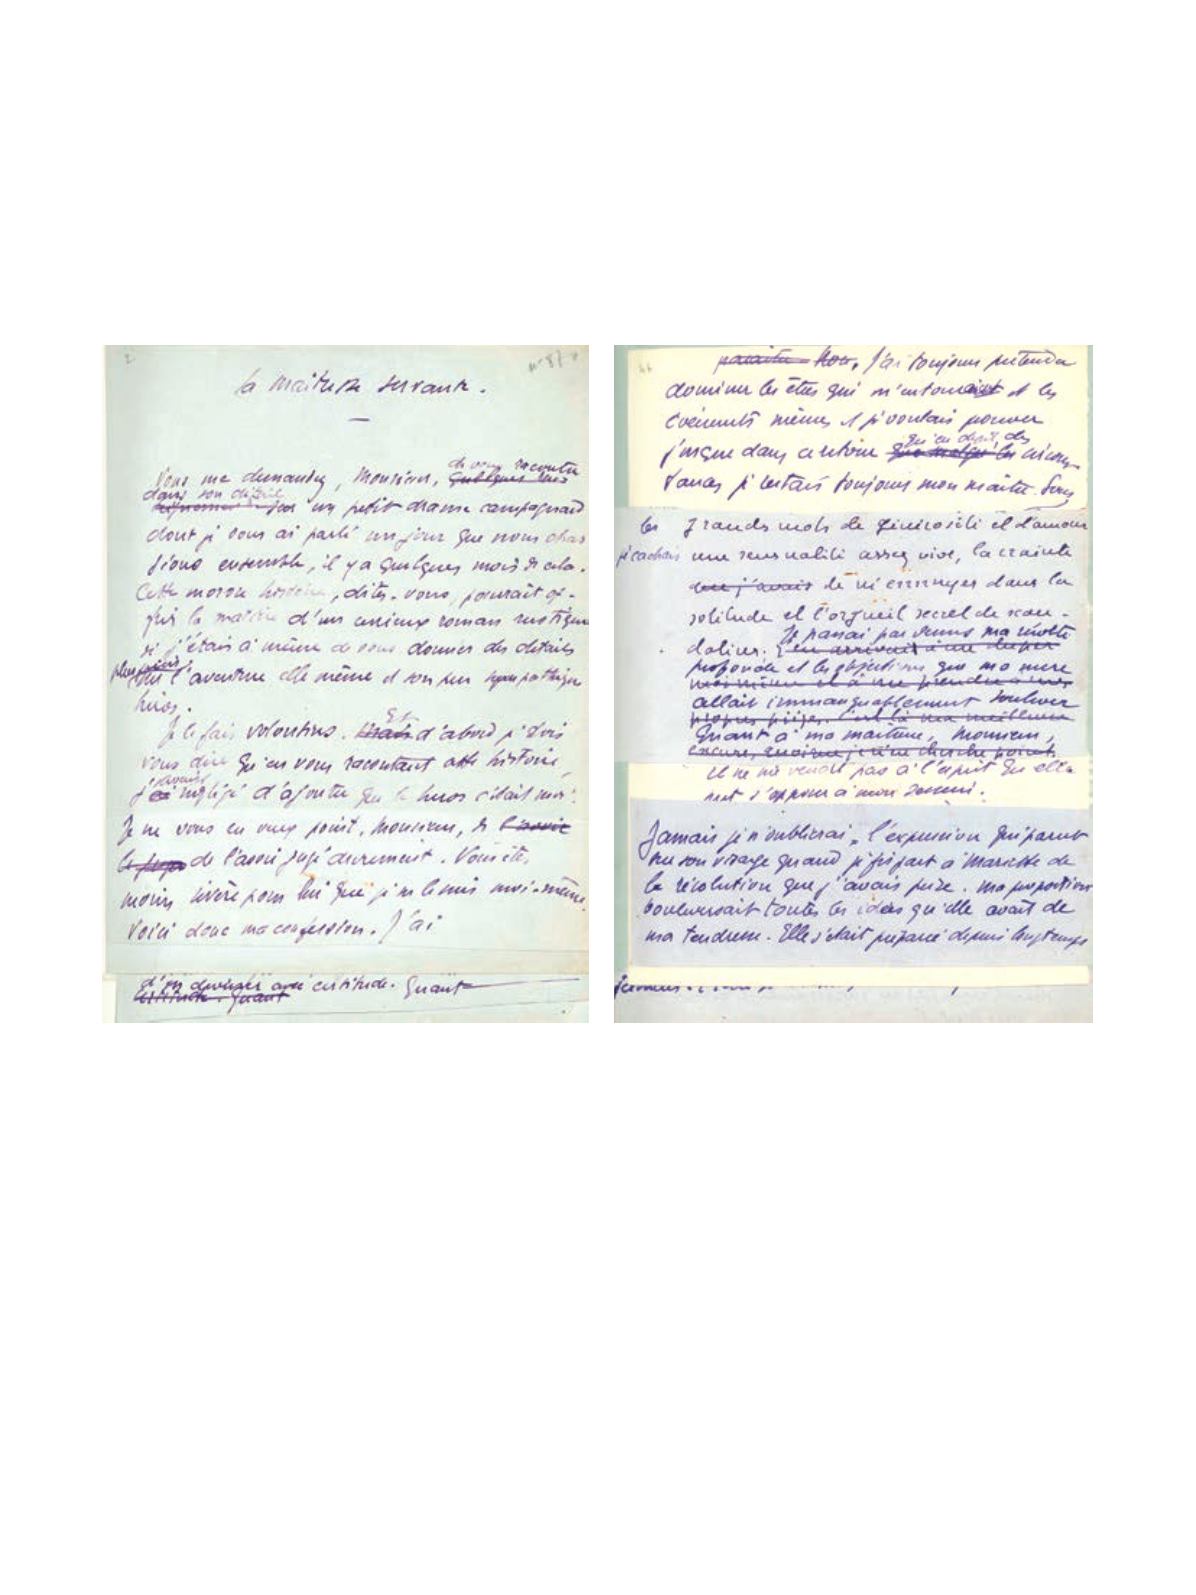 2
n° 87
La Maîtresse Servante.
Vous me demandez, Monsieur, quelques
de vous raconter
dans son détail
un petit drame campagnard
dont je vous ai parlé un jour que nous chas
sions ensemble, il y a quelques mois de cela.
Cette morose histoire, dites-vous, pourrait of-
frir la matière d'un curieux roman rustique
si j'étais à même de vous donner des détails
plus précis
sur l'aventure elle même et son peu sympathique
héros.
Je le fais volontiers. Mais d'abord je dois
Et
vous dire qu'en vous racontant cette histoire,
j'ai négligé d'ajouter que le héros c'était moi.
j'avais
Je ne vous en veux point, Monsieur, de l'avoir
le juger de l'avoir jugé durement. Vous êtes
moins sévère pour lui que je ne le suis moi-même.
Voici donc ma confession. J'ai
d'en deviner avec certitude. Quant
certitude. Quant
44
paraître Non, J'ai toujours prétendu
dominer les êtres qui m'entouraient et les
événements mêmes et je voulais prouver
jusque dans ce que malgré les circons-
qu'en dépit des
tances je restais toujours mon maître. Sous
les grands mots de générosité et d'amour
je cachais une sensualité assez vive, la crainte
que j'avais de m'ennuyer dans la
solitude et l'orgueil secret de scan-
daliser. J'en arrivais à me duper
Je passai par dessus ma révolte
profonde et les objections que ma mère
moi-même et à me prendre à mes
allait immanquablement soulever
propres pièges. C'est là ma meilleure
Quant à ma maîtresse, Monsieur,
excuse, quoique je n'en cherche point.
il ne me venait pas à l'esprit qu'elle
put s'opposer à mon dessein.
Jamais je n'oublierai, l'expression qui parut
sur son visage quand je fis part à Mariette de
la résolution que j'avais prise. Ma proposition
bouleversait toutes les idées qu'elle avait de
ma tendresse. Elle s'était préparée depuis longtemps